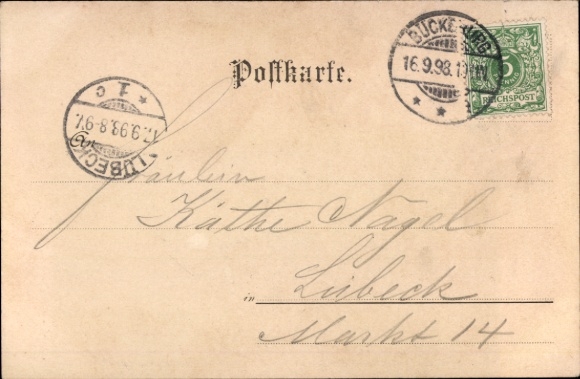 Postkarte.
BÜCKEBURG
16.9.98.
5
REICHSPOST
* 1 c
17.9.98.8-9V.
* LÜBECK
Fräulein
Käthe Nagel
in Lübeck
Markt 14